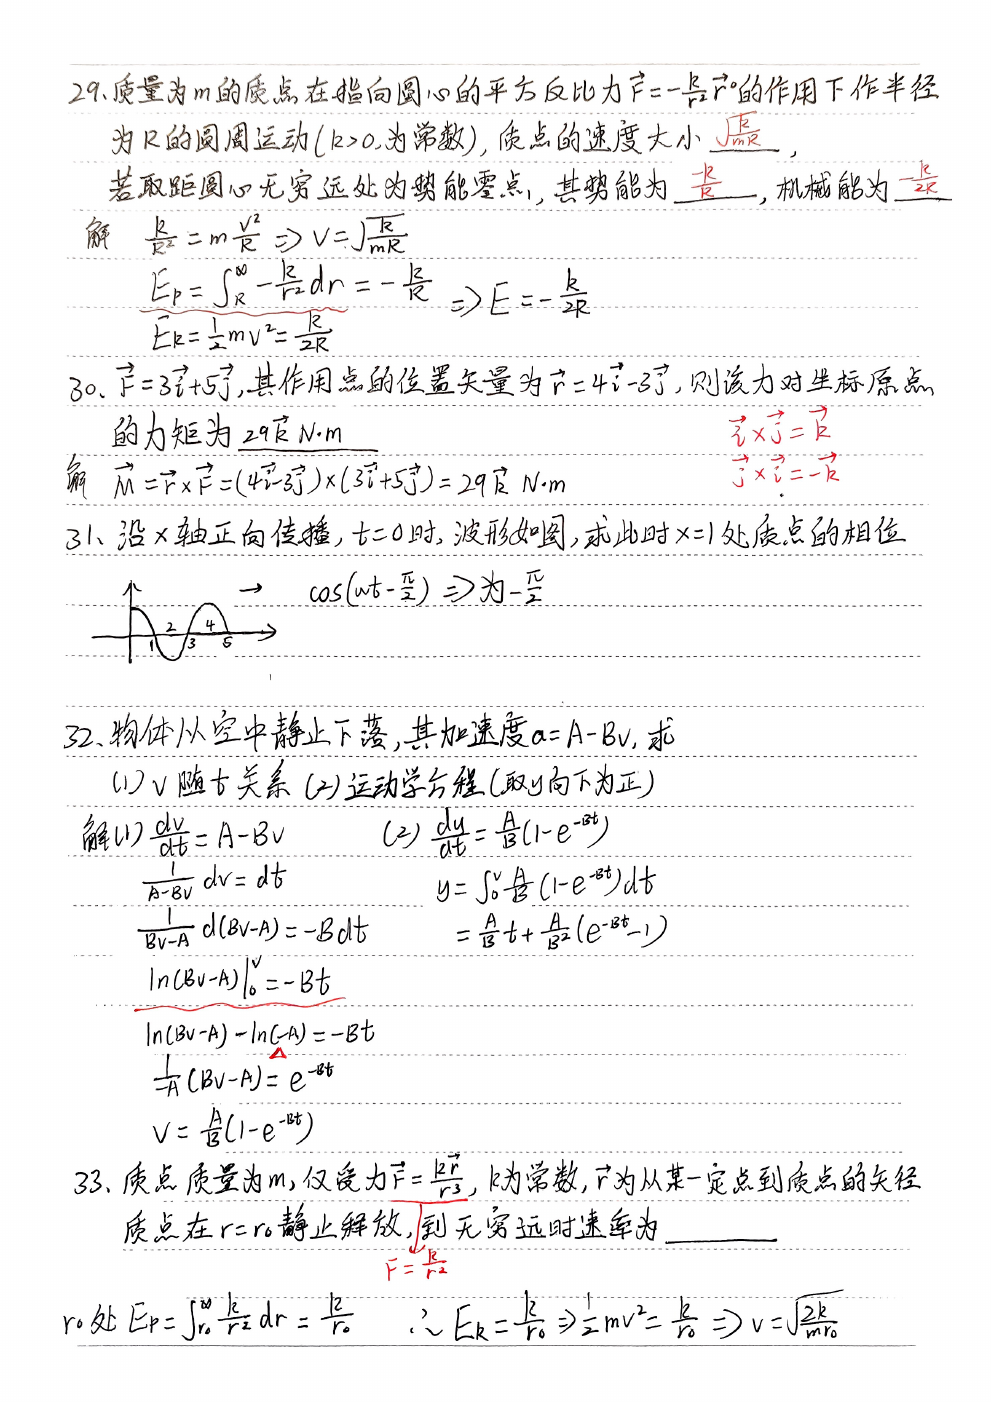 29、质量为m的质点在指向圆心的平方反比力为F⃗=-k/r² r⃗°的作用下作半径
为R的圆周运动(k>0,为常数),质点的速度大小 √(k/mR) ,
若取距圆心无穷远处为势能零点,其势能为 -k/R ,机械能为 -k/2R
解 k/R² = m v²/R ⇒ v=√(k/mR)
Ep=∫_R^∞ -k/r² dr = -k/R ⇒ E=-k/2R
Ek=½mv²=k/2R
30、F⃗=3i⃗+5j⃗,其作用点的位置矢量为r⃗=4i⃗-3j⃗,则该力对坐标原点
的力矩为 29k⃗ N·m
i⃗×j⃗=k⃗
j⃗×i⃗=-k⃗
解 M⃗=r⃗×F⃗=(4i⃗-3j⃗)×(3i⃗+5j⃗)=29k⃗ N·m
31、沿x轴正向传播,t=0时,波形如图,求此时x=1处质点的相位
cos(wt-π/2) ⇒为-π/2
→
1 2 3 4 5
32、物体从空中静止下落,其加速度a=A-Bv,求
(1)v随t关系 (2)运动学方程(取y向下为正)
解(1) dv/dt=A-Bv (2) dy/dt=A/B(1-e^-Bt)
1/(A-Bv) dv=dt y=∫_0^v A/B (1-e^-Bt)dt
1/(Bv-A) d(Bv-A)=-Bdt =A/B t+A/B²(e^-Bt-1)
ln(Bv-A)|_0^v=-Bt
ln(Bv-A)-ln(-A)=-Bt
1/-A (Bv-A)=e^-Bt
v=A/B(1-e^-Bt)
33、质点质量为m,仅受力F⃗=kr⃗/r³,k为常数,r⃗为从某一定点到质点的矢径
质点在r=r₀静止释放,到无穷远时速率为
F=k/r²
r₀处 Ep=∫_r₀^∞ k/r² dr=k/r₀ ∴Ek=k/r₀ ⇒½mv²=k/r₀ ⇒v=√(2k/mr₀)